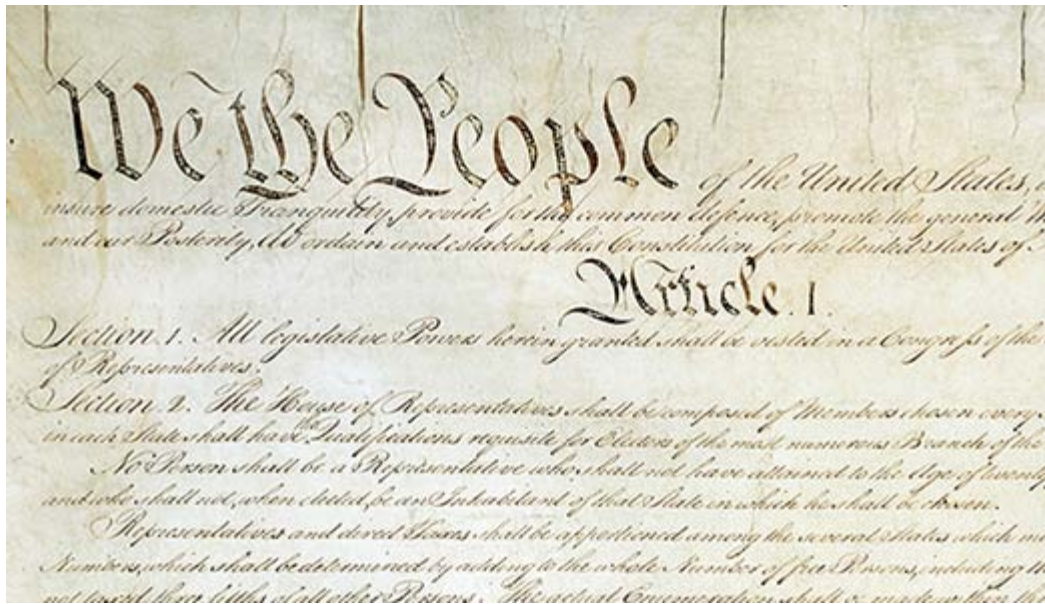 We the People of the United States,
insure domestic Tranquility, provide for the common defence, promote the general
and our Posterity, do ordain and establish this Constitution for the United States of
Article. I.
Section. 1. All legislative Powers herein granted shall be vested in a Congress of the
of Representatives.
Section. 2. The House of Representatives shall be composed of Members chosen every
in each State shall have Qualifications requisite for Electors of the most numerous Branch of the
No Person shall be a Representative who shall not have attained to the Age of twenty
and who shall not, when elected, be an Inhabitant of that State in which he shall be chosen.
Representatives and direct Taxes shall be apportioned among the several States which
Numbers, which shall be determined by adding to the whole Number of free Persons, including
not taxed, three fifths of all other Persons. The actual Enumeration shall be made within